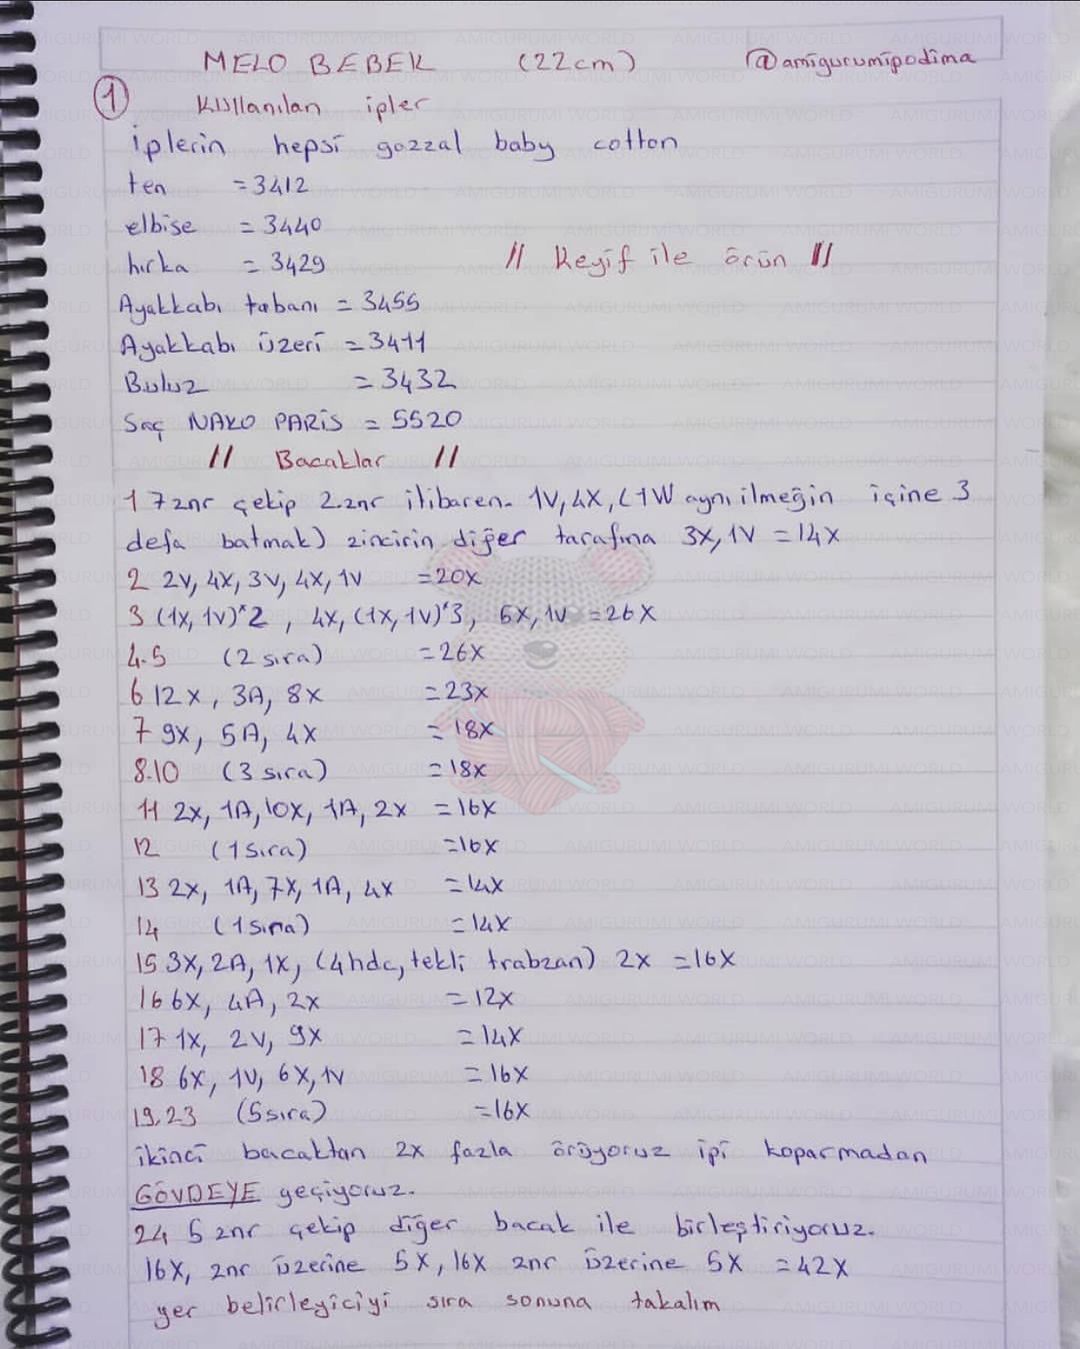 MELO BEBEK (22cm) @amigurumipodima
1 Kullanılan ipler
İplerin hepsi gazzal baby cotton
ten = 3412
elbise = 3440
hırka = 3429
// Keyif ile örün //
Ayakkabı tabanı = 3455
Ayakkabı üzeri = 3411
Buluz = 3432
Saç NAKO PARİS = 5520
// Bacaklar //
1 7 znr çekip 2.znr itibaren. 1V, 4X, (1W aynı ilmeğin içine 3
defa batmak) zincirin diğer tarafına 3X, 1V = 14X
2 2V, 4X, 3V, 4X, 1V = 20X
3 (1X, 1V)*2, 4X, (1X, 1V)*3, 6X, 1V = 26X
4.5 (2 sıra) = 26X
6 12X, 3A, 8X = 23X
7 9X, 5A, 4X = 18X
8.10 (3 sıra) = 18X
11 2X, 1A, 10X, 1A, 2X = 16X
12 (1 sıra) = 16X
13 2X, 1A, 7X, 1A, 4X = 14X
14 (1 sıra) = 14X
15 3X, 2A, 1X, (4hdc, tekli trabzan) 2X = 16X
16 6X, 4A, 2X = 12X
17 1X, 2V, 9X = 14X
18 6X, 1V, 6X, 1V = 16X
19.23 (5 sıra) = 16X
ikinci bacaktan 2X fazla örüyoruz ipi koparmadan
GÖVDEYE geçiyoruz.
24 5 znr çekip diğer bacak ile birleştiriyoruz.
16X, znr üzerine 5X, 16X znr üzerine 5X = 42X
yer belirleyiciyi sıra sonuna takalım
AMIGURUMI WORLD